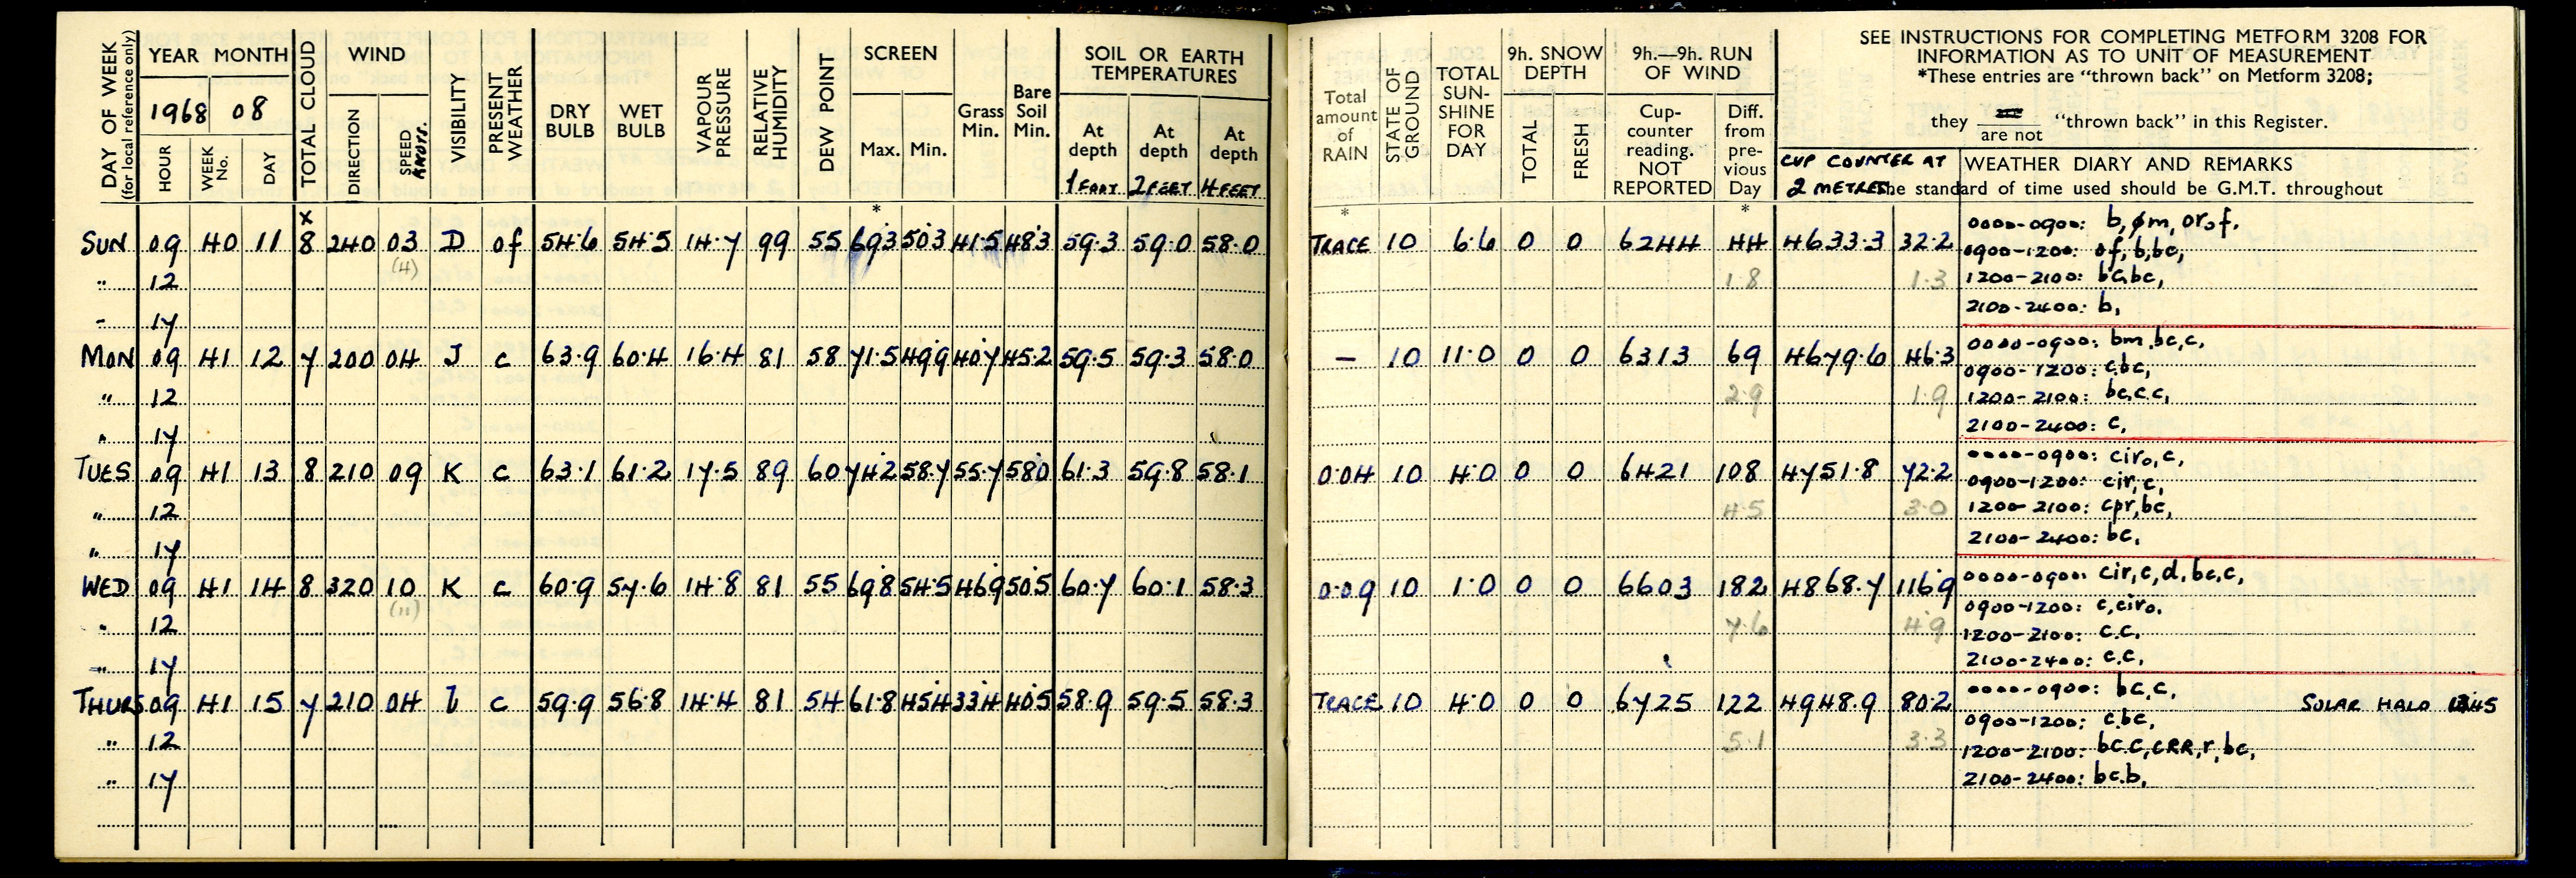 DAY OF WEEK
(for local reference only)
YEAR MONTH
1968 08
HOUR
WEEK No.
DAY
TOTAL CLOUD
WIND
DIRECTION
SPEED
KNOTS.
VISIBILITY
PRESENT WEATHER
DRY BULB
WET BULB
VAPOUR PRESSURE
RELATIVE HUMIDITY
DEW POINT
SCREEN
Max.
Min.
Grass Min.
Bare Soil Min.
SOIL OR EARTH
TEMPERATURES
At depth 1 FOOT
At depth 2 FEET
At depth 4 FEET
x *
SUN 09 40 11 8 240 03 D of 54·6 54·5 14·7 99 55 69·3 50·3 41·5 48·3 59·3 59·0 58·0
(4)
" 12
" 17
MON 09 41 12 7 200 04 J c 63·9 60·4 16·4 81 58 71·5 49·9 40·7 45·2 59·5 59·3 58·0
" 12
" 17
TUES 09 41 13 8 210 09 K c 63·1 61·2 17·5 89 60 74·2 58·7 55·7 58·0 61·3 59·8 58·1
" 12
" 17
WED 09 41 14 8 320 10 K c 60·9 57·6 14·8 81 55 69·8 54·5 46·9 50·5 60·7 60·1 58·3
(11)
" 12
" 17
THURS 09 41 15 7 210 04 I c 59·9 56·8 14·4 81 54 61·8 45·4 33·4 40·5 58·9 59·5 58·3
" 12
" 17
Total amount of RAIN
STATE OF GROUND
TOTAL SUN-SHINE FOR DAY
9h. SNOW DEPTH
TOTAL
FRESH
9h.—9h. RUN OF WIND
Cup-counter reading. NOT REPORTED
Diff. from pre-vious Day
SEE INSTRUCTIONS FOR COMPLETING METFORM 3208 FOR
INFORMATION AS TO UNIT OF MEASUREMENT
*These entries are "thrown back" on Metform 3208;
they are are not "thrown back" in this Register.
CUP COUNTER AT
2 METRES
WEATHER DIARY AND REMARKS
The standard of time used should be G.M.T. throughout
* *
TRACE 10 6·6 0 0 6244 44 4633·3 32·2
1·8 1·3
0900-1200: of, b, bc,
1200-2100: bc, bc,
2100-2400: b,
— 10 11·0 0 0 6313 69 4679·6 46·3
2·9 1·9
0000-0900: bm, bc, c,
0900-1200: c, bc,
1200-2100: bc, c. c,
2100-2400: c,
0·04 10 4·0 0 0 6421 108 4751·8 72·2
4·5 3·0
0000-0900: ciro, c,
0900-1200: cir, c,
1200-2100: cpr, bc,
2100-2400: bc,
0·09 10 1·0 0 0 6603 182 4868·7 116·9
7·6 4·9
0000-0900: cir, c, d, bc, c,
0900-1200: c, ciro.
1200-2100: c. c.
2100-2400: c. c,
TRACE 10 4·0 0 0 6725 122 4948·9 80·2
5·1 3·3
0000-0900: bc, c,
SOLAR HALO
0900-1200: c, bc,
1200-2100: bc. c, cRR, r, bc,
2100-2400: bc. b,